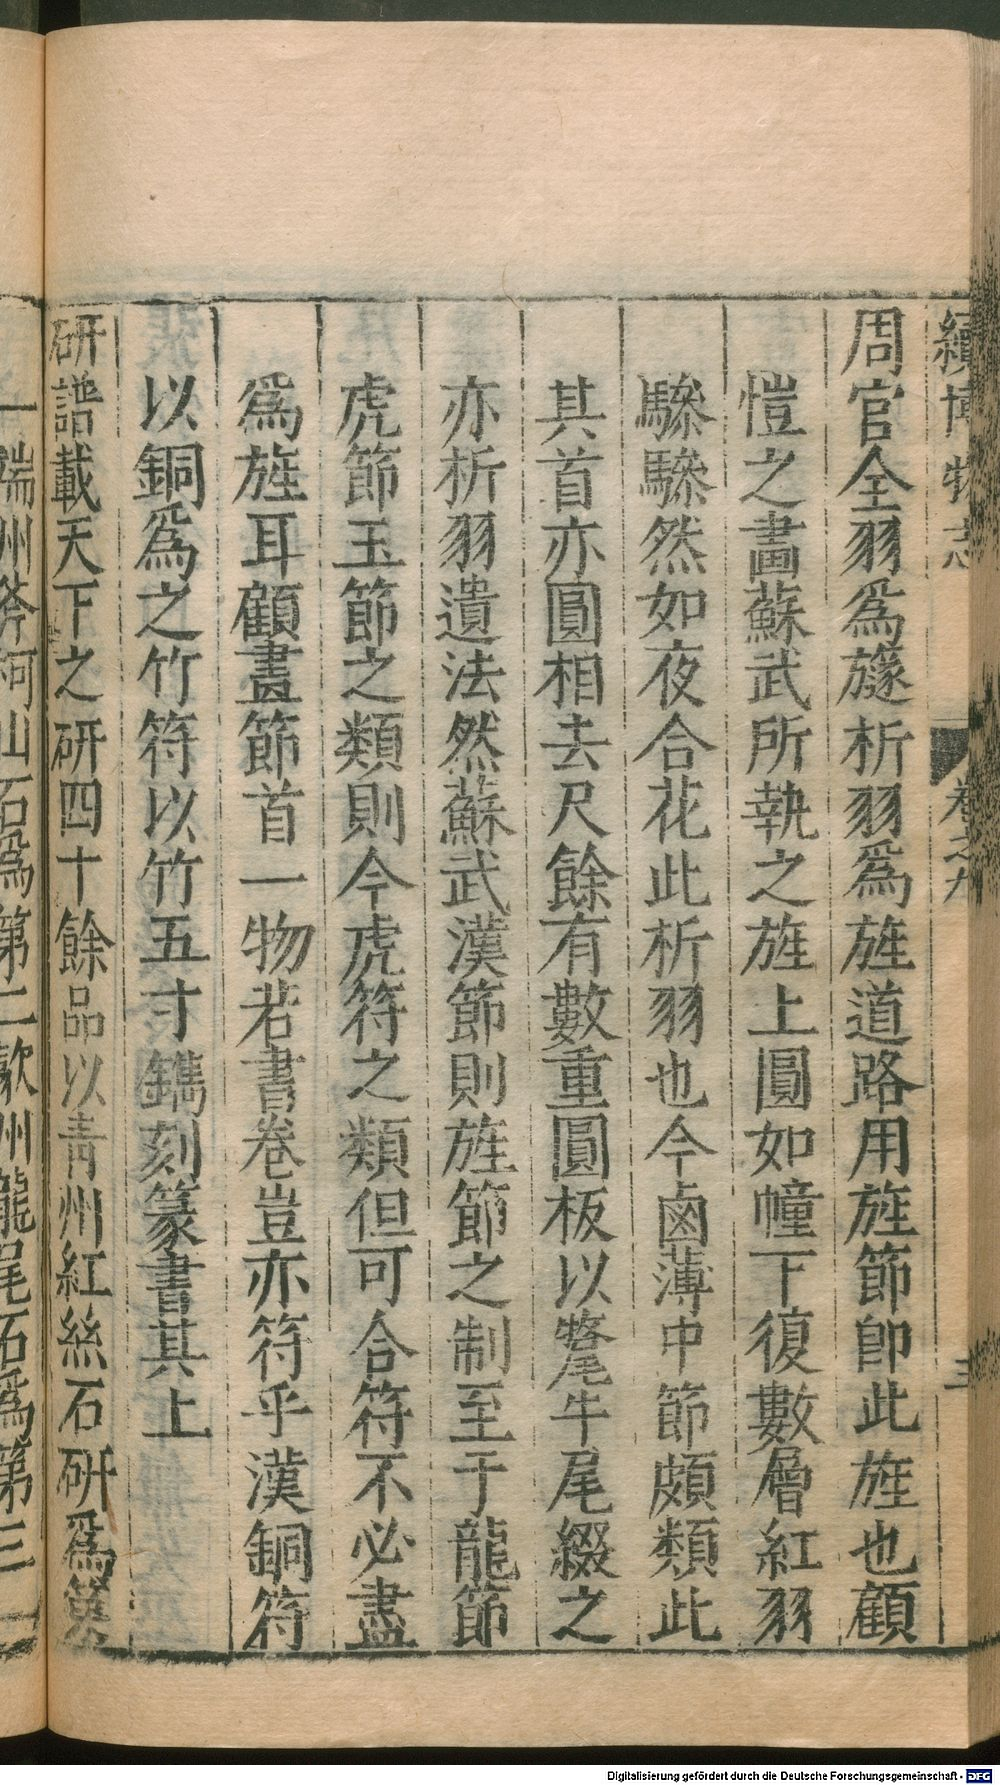 續博物志 卷之九 三
周官全羽爲旞析羽爲旌道路用旌節卽此旌也顧
愷之畫蘇武所執之旌上圓如幢下復數層紅羽
鬖鬖然如夜合花此析羽也今鹵薄中節頗類此
其首亦圓相去尺餘有數重圓板以氂牛尾綴之
亦析羽遺法然蘇武漢節則旌節之制至于龍節
虎節玉節之類則今虎符之類但可合符不必盡
爲旌耳顧畫節首一物若書卷豈亦符乎漢銅符
以銅爲之竹符以竹五寸鐫刻篆書其上
研譜載天下之研四十餘品以青州紅絲石硏爲第
一端州斧柯山石爲第二歙州龍尾石爲第三
Digitalisierung gefördert durch die Deutsche Forschungsgemeinschaft - DFG